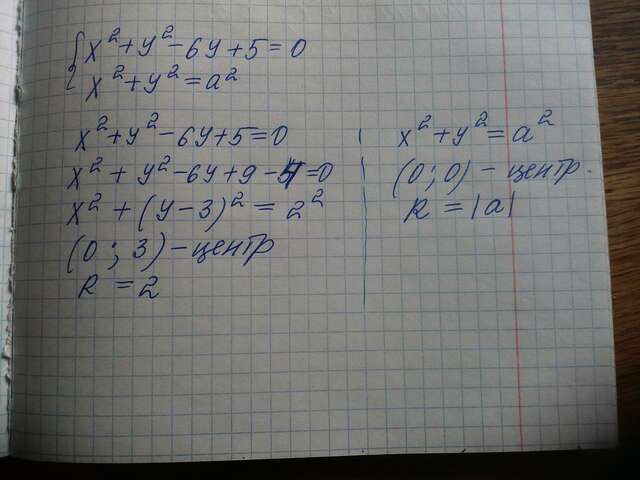 { x² + y² - 6y + 5 = 0
x² + y² = a²
x² + y² - 6y + 5 = 0
x² + y² - 6y + 9 - 4 = 0
x² + (y - 3)² = 2²
(0 ; 3) - центр
R = 2
x² + y² = a²
(0 ; 0) - центр.
R = |a|